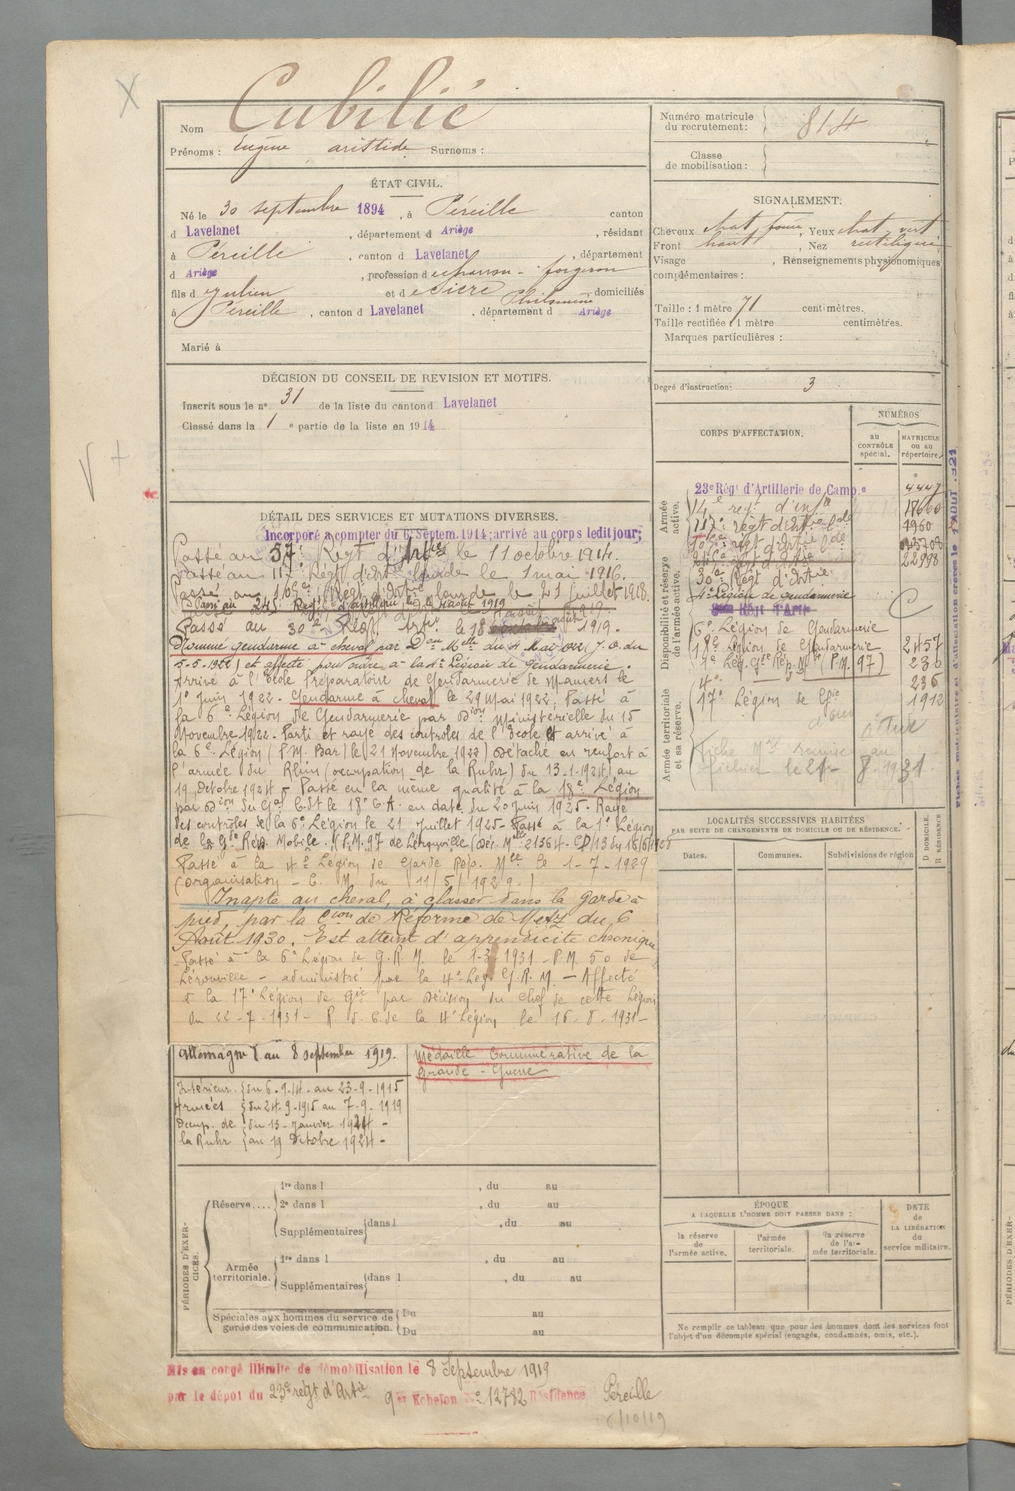 Nom Cubilié
Prénoms : Eugène aristide Surnoms :
Numéro matricule du recrutement : 814
Classe de mobilisation :
ÉTAT CIVIL.
Né le 30 septembre 1894, à Péreille canton
d Lavelanet, département d Ariège, résidant
à Péreille, canton d Lavelanet, département
d Ariège, profession de forgeron
fils d Julien et de Sicre Philomène domiciliés
à Péreille, canton d Lavelanet, département d Ariège
Marié à
SIGNALEMENT.
Cheveux chat. foncé, Yeux chat. vert
Front haut, Nez rectiligne
Visage , Renseignements physionomiques
complémentaires :
Taille : 1 mètre 71 centimètres.
Taille rectifiée : 1 mètre centimètres.
Marques particulières :
Degré d'instruction : 3
DÉCISION DU CONSEIL DE REVISION ET MOTIFS.
Inscrit sous le n° 31 de la liste du canton d Lavelanet
Classé dans la 1 e partie de la liste en 1914
CORPS D'AFFECTATION.
NUMÉROS
AU CONTRÔLE SPÉCIAL.
MATRICULE OU AU RÉPERTOIRE.
Armée active.
Disponibilité et réserve de l'armée active.
Armée territoriale et sa réserve.
23e Régt d'Artillerie de Camp.e 4447
14e regt d'infie
117e régt d'Artie lde 1960
22998
30e Régt d'Artie
4e Légion de gendarmerie
6e Légion de Gendarmerie
18e Légion de Gendarmerie 2457
(P.M. 97) 236
4e 236
17e Légion de Gie 1912
DÉTAIL DES SERVICES ET MUTATIONS DIVERSES.
Incorporé à compter du 6 Septem. 1914; arrivé au corps ledit jour;
Passé au 57e Régt d'Artie le 11 octobre 1914.
Passé au 117e Régt d'Art lourde le 1 mai 1916.
Passé au Régt d'Artie lourde le 21 juillet 1918.
Passé au 245 Regt d'artillerie le Août 1919
Passé au 30e Régt Artie le 18 août 1919.
Nommé gendarme à cheval par Don Mlle du 4 Mai 1922 (J.O. du
5-5-1922) et affecté pour ordre à la 4e Légion de gendarmerie.
Arrivé à l'école Préparatoire de Gendarmerie de Mamers le
1e Juin 1922. Gendarme à cheval le 29 Mai 1922. Passé à
la 6e Légion de Gendarmerie par Dion Ministérielle du 15
Novembre 1922. Parti et rayé des contrôles de l'école et arrivé à
la 6e Légion (P.M. Bar) le (21 Novembre 1922) Détaché en renfort à
l'armée du Rhin (occupation de la Ruhr) du 13-1-1924 au
19 Octobre 1924. Passé en la même qualité à la 18e Légion
par Don du Gal Cdt le 18e C.A. en date du 20 Juin 1925. Rayé
des contrôles de la 6e Légion le 21 Juillet 1925. Passé à la 1e Légion
de la Gde Rép. Mobile. P.M. 97 de Lérouville
Passé à la 4e Légion de Garde Rép. Mle le 1-7-1929
(organisation - C. M. du 11/5/1929)
Inapte au cheval, à classer dans la garde à
pied, par la Cion de Réforme de Metz du 6
Août 1930. Est atteint d'appendicite chronique
Passé à la 6e Légion de G.R.M. le 1-3-1931 - P.M. 50 de
Lérouville - administré par la 4e Lég. G.R.M. - Affecté
à la 17e Légion de Gie par décision du Chef de cette Légion
du 22-7-1931 - R. d. C. de la 4e Légion le 16-8-1931 -
Allemagne au 8 septembre 1919.
Intérieur du 6-9-14 au 23-9-1915
Armées du 24-9-1915 au 7-9-1919
Occup. de du 13 Janvier 1924 -
la Ruhr au 19 Octobre 1924 -
Médaille Commémorative de la
Grande-Guerre
LOCALITÉS SUCCESSIVES HABITÉES
PAR SUITE DE CHANGEMENTS DE DOMICILE OU DE RÉSIDENCE.
Dates.
Communes.
Subdivisions de région
D DOMICILE.
R RÉSIDENCE
ÉPOQUE
A LAQUELLE L'HOMME DOIT PASSER DANS :
la réserve de l'armée active.
l'armée territoriale.
la réserve de l'armée territoriale.
DATE de LA LIBÉRATION du service militaire.
Ne remplir ce tableau que pour les hommes dont les services font
l'objet d'un décompte spécial (engagés, condamnés, omis, etc.).
PÉRIODES D'EXERCICES.
Réserve....
1re dans l , du au
2e dans l , du au
Supplémentaires dans l , du au
Armée territoriale.
1re dans l , du au
Supplémentaires dans l , du au
Spéciales aux hommes du service de garde des voies de communication.
Du au
Du au
Mis en congé illimité de démobilisation le 8 Septembre 1919
par le dépôt du 23e régt d'Artie 9e Echelon N° 12782 Résidence Péreille
6/10/19